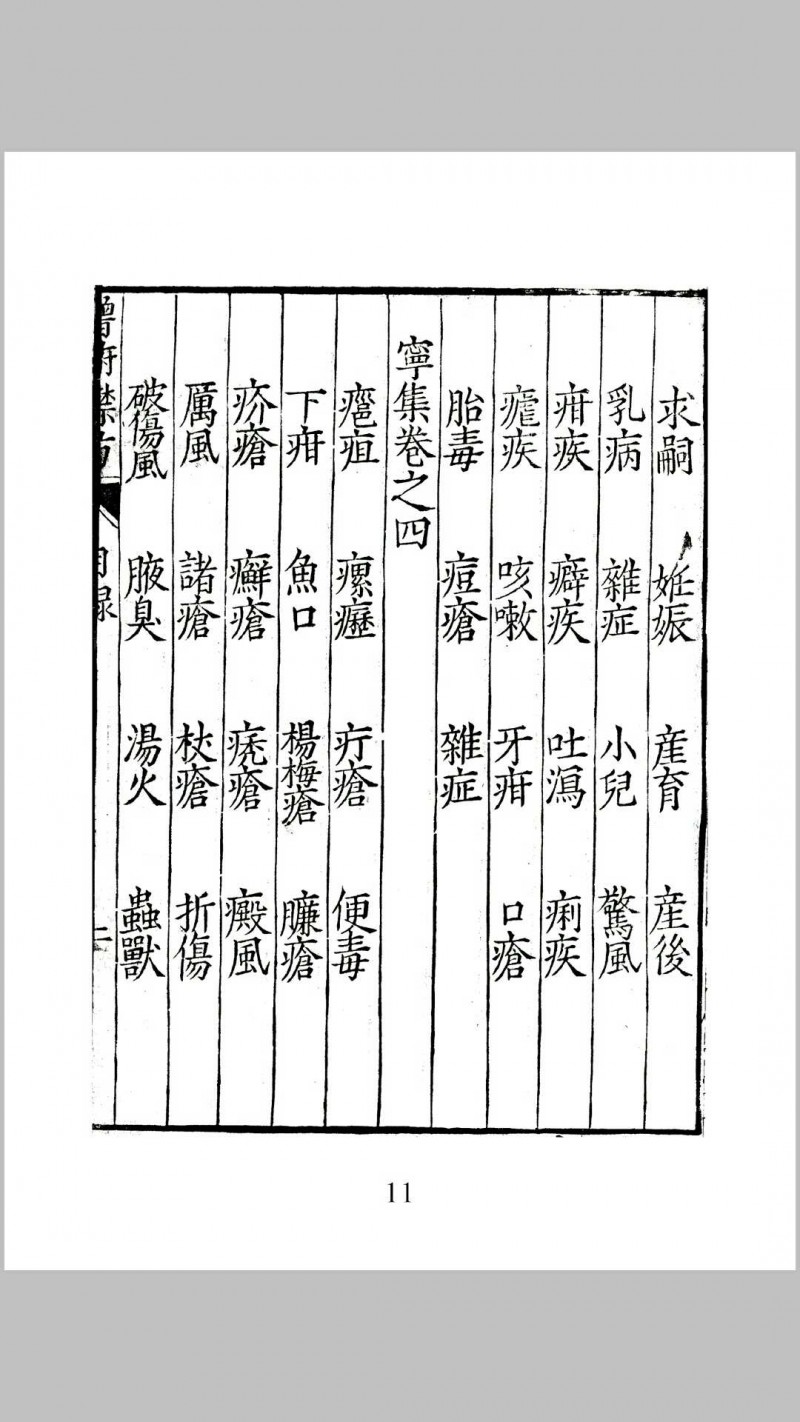 求嗣 妊娠 產育 產後
乳病 雜症 小兒 驚風
疳疾 癖疾 吐瀉 痢疾
瘧疾 咳嗽 牙疳 口瘡
胎毒 痘瘡 雜症
寧集卷之四
癰疽 瘰癧 疔瘡 便毒
下疳 魚口 楊梅瘡 臁瘡
疥瘡 癬瘡 禿瘡 癜風
厲風 諸瘡 杖瘡 折傷
破傷風 腋臭 湯火 蟲獸
魯府禁方 目錄 二
11